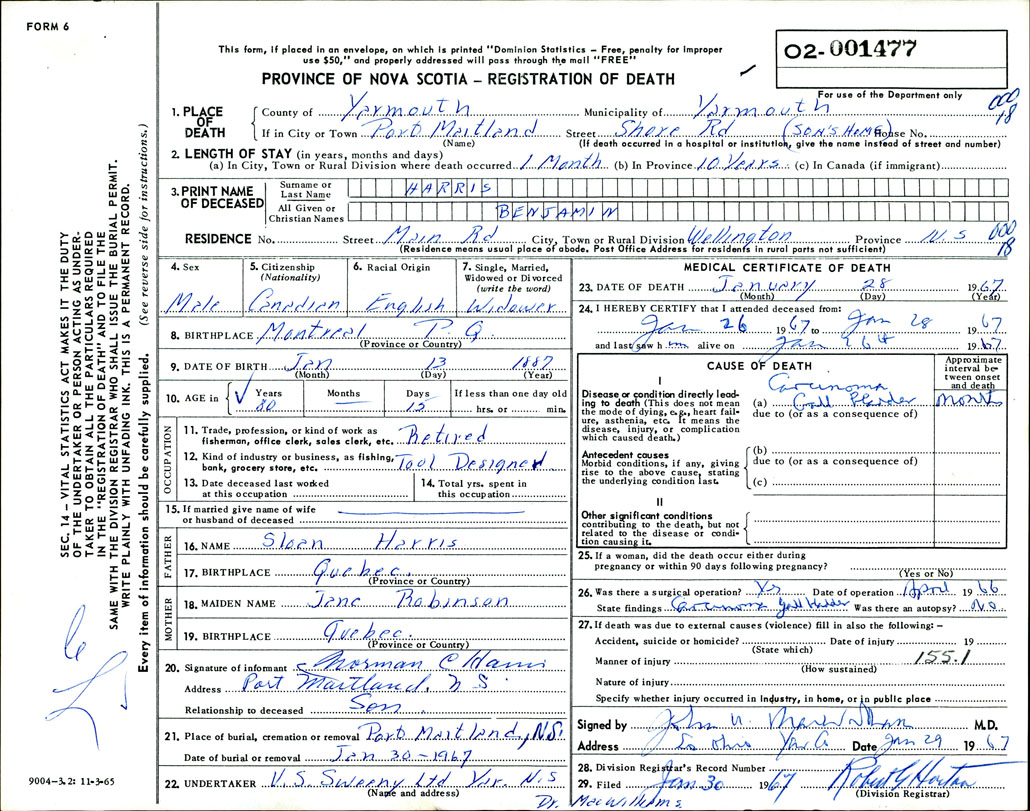 FORM 6
This form, if placed in an envelope, on which is printed "Dominion Statistics – Free, penalty for improper
use $50," and properly addressed will pass through the mail "FREE"
PROVINCE OF NOVA SCOTIA – REGISTRATION OF DEATH
02-001477
For use of the Department only
000
18
1. PLACE OF DEATH
County of Yarmouth Municipality of Yarmouth
If in City or Town Port Maitland Street Shore Rd (SON'S HOME) House No.
(Name) (If death occurred in a hospital or institution, give the name instead of street and number)
2. LENGTH OF STAY (in years, months and days)
(a) In City, Town or Rural Division where death occurred 1 Month (b) In Province 10 Years (c) In Canada (if immigrant)
3. PRINT NAME OF DECEASED
Surname or Last Name HARRIS
All Given or Christian Names BENJAMIN
RESIDENCE No. Street Main Rd City, Town or Rural Division Wellington Province N.S
000
18
(Residence means usual place of abode. Post Office Address for residents in rural parts not sufficient)
4. Sex
Male
5. Citizenship
(Nationality)
Canadian
6. Racial Origin
English
7. Single, Married,
Widowed or Divorced
(write the word)
Widower
8. BIRTHPLACE Montreal P.Q.
(Province or Country)
9. DATE OF BIRTH Jan 13 1887
(Month) (Day) (Year)
10. AGE in Years Months Days If less than one day old
80 — 15 hrs. or min.
OCCUPATION
11. Trade, profession, or kind of work as
fisherman, office clerk, sales clerk, etc. Retired
12. Kind of industry or business, as fishing,
bank, grocery store, etc. Tool Designer
13. Date deceased last worked
at this occupation
14. Total yrs. spent in
this occupation
15. If married give name of wife
or husband of deceased
FATHER
16. NAME Sloan Harris
17. BIRTHPLACE Quebec.
(Province or Country)
MOTHER
18. MAIDEN NAME Jane Robinson
19. BIRTHPLACE Quebec.
(Province or Country)
20. Signature of informant Norman C Harris
Address Port Maitland. N S.
Relationship to deceased Son.
21. Place of burial, cremation or removal Port Maitland, N.S.
Date of burial or removal Jan 30-1967
22. UNDERTAKER V.S. Sweeny Ltd Yar. N.S
(Name and address)
MEDICAL CERTIFICATE OF DEATH
23. DATE OF DEATH January 28 1967
(Month) (Day) (Year)
24. I HEREBY CERTIFY that I attended deceased from:
Jan 26 1967 to Jan 28 1967
and last saw h im alive on Jan 26th 1967
CAUSE OF DEATH
Approximate
interval be-
tween onset
and death
I
Disease or condition directly lead-
ing to death (This does not mean
the mode of dying, e.g., heart fail-
ure, asthenia, etc. It means the
disease, injury, or complication
which caused death.)
Carcinoma
(a) Gall Bladder months
due to (or as a consequence of)
Antecedent causes
Morbid conditions, if any, giving
rise to the above cause, stating
the underlying condition last.
(b)
due to (or as a consequence of)
(c)
II
Other significant conditions
contributing to the death, but not
related to the disease or condi-
tion causing it.
25. If a woman, did the death occur either during
pregnancy or within 90 days following pregnancy?
(Yes or No)
26. Was there a surgical operation? Yes Date of operation April 1966
State findings Carcinoma Gall Bladder Was there an autopsy? No
27. If death was due to external causes (violence) fill in also the following: –
Accident, suicide or homicide? Date of injury 19
(State which)
Manner of injury 155.1
(How sustained)
Nature of injury
Specify whether injury occurred in Industry, in home, or in public place
Signed by John M.D.
Address Date Jan 29 1967
28. Division Registrar's Record Number
29. Filed Jan 30 1967 Robert G Horton
(Division Registrar)
Dr. MacWilliams
SEC. 14 – VITAL STATISTICS ACT MAKES IT THE DUTY
OF THE UNDERTAKER OR PERSON ACTING AS UNDER-
TAKER TO OBTAIN ALL THE PARTICULARS REQUIRED
IN THE "REGISTRATION OF DEATH" AND TO FILE THE
SAME WITH THE DIVISION REGISTRAR WHO SHALL ISSUE THE BURIAL PERMIT.
WRITE PLAINLY WITH UNFADING INK. THIS IS A PERMANENT RECORD.
Every item of information should be carefully supplied. (See reverse side for instructions.)
9004-3.2: 11-3-65